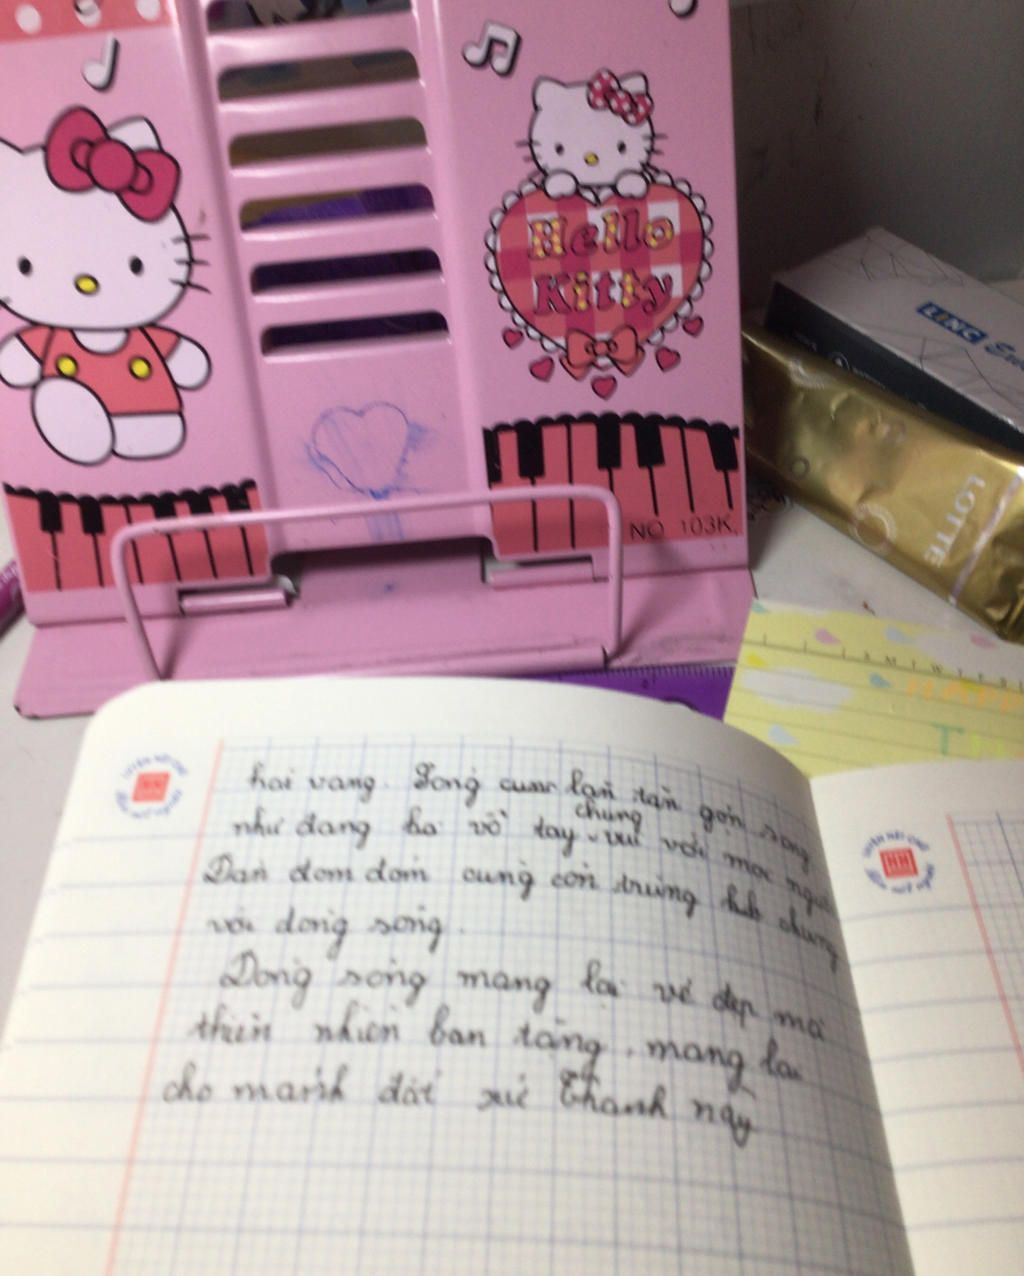 Hello
Kitty
NO 103K.
LINC
LOTTE
S M T W T F S
hai vang. Song cuar lan tan gợn song
như dang ho vỗ tay chung vui với moi người
Dan dom dom cung con trung
với dong sông.
Dong sông mang lại vẻ đẹp mà
thiên nhiên ban tặng, mang lại
cho mảnh đất xứ Thanh này